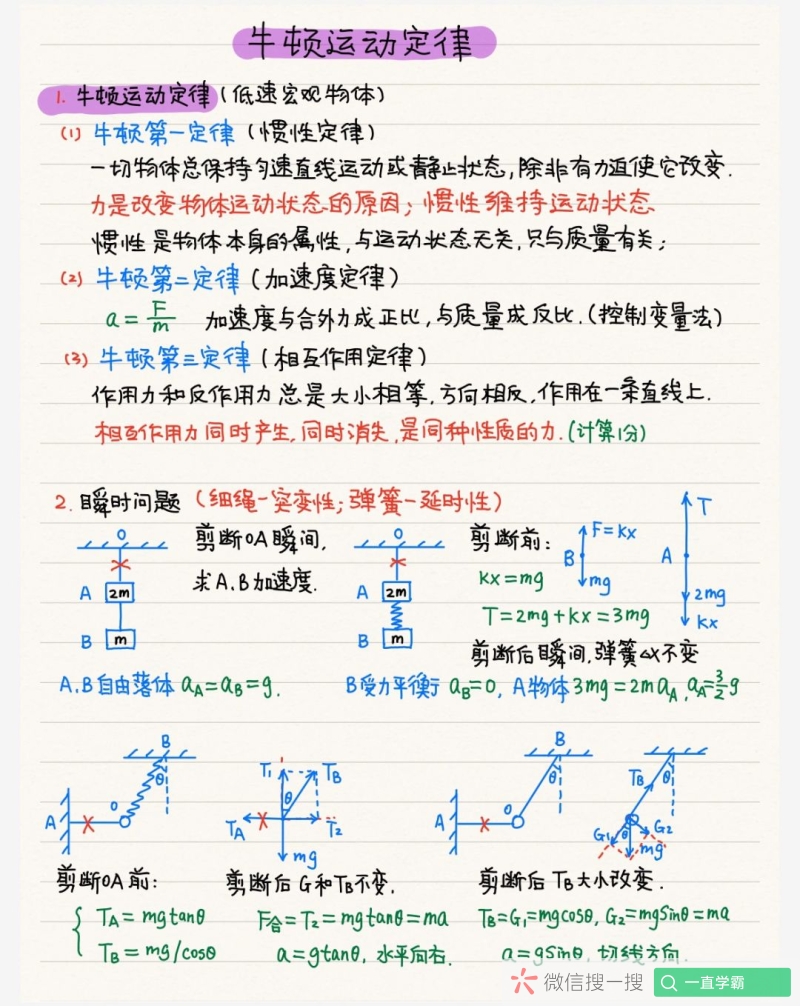 牛顿运动定律
1. 牛顿运动定律(低速宏观物体)
(1) 牛顿第一定律(惯性定律)
一切物体总保持匀速直线运动或静止状态,除非有力迫使它改变.
力是改变物体运动状态的原因; 惯性维持运动状态
惯性是物体本身的属性,与运动状态无关,只与质量有关;
(2) 牛顿第二定律(加速度定律)
a=F/m 加速度与合外力成正比,与质量成反比.(控制变量法)
(3) 牛顿第三定律(相互作用定律)
作用力和反作用力总是大小相等,方向相反,作用在一条直线上.
相互作用力同时产生,同时消失,是同种性质的力.(计算1分)
2. 瞬时问题(细绳—突变性; 弹簧—延时性)
O
A 2m
B m
剪断OA瞬间,
求A.B加速度.
O
A 2m
B m
剪断前:
B F=kx mg
A T 2mg kx
kx=mg
T=2mg+kx=3mg
剪断后瞬间,弹簧△x不变
A.B自由落体 aA=aB=g.
B受力平衡 aB=0, A物体3mg=2maA, aA=3/2g
B
θ
A O
T1 TB
θ
TA T2
mg
B
θ
A O
TB θ
G1 θ G2
mg
剪断OA前:
TA=mgtanθ
TB=mg/cosθ
剪断后G和TB不变.
F合=T2=mgtanθ=ma
a=gtanθ, 水平向右.
剪断后TB大小改变.
TB=G1=mgcosθ, G2=mgsinθ=ma
a=gsinθ, 切线方向.
微信搜一搜 一直学霸